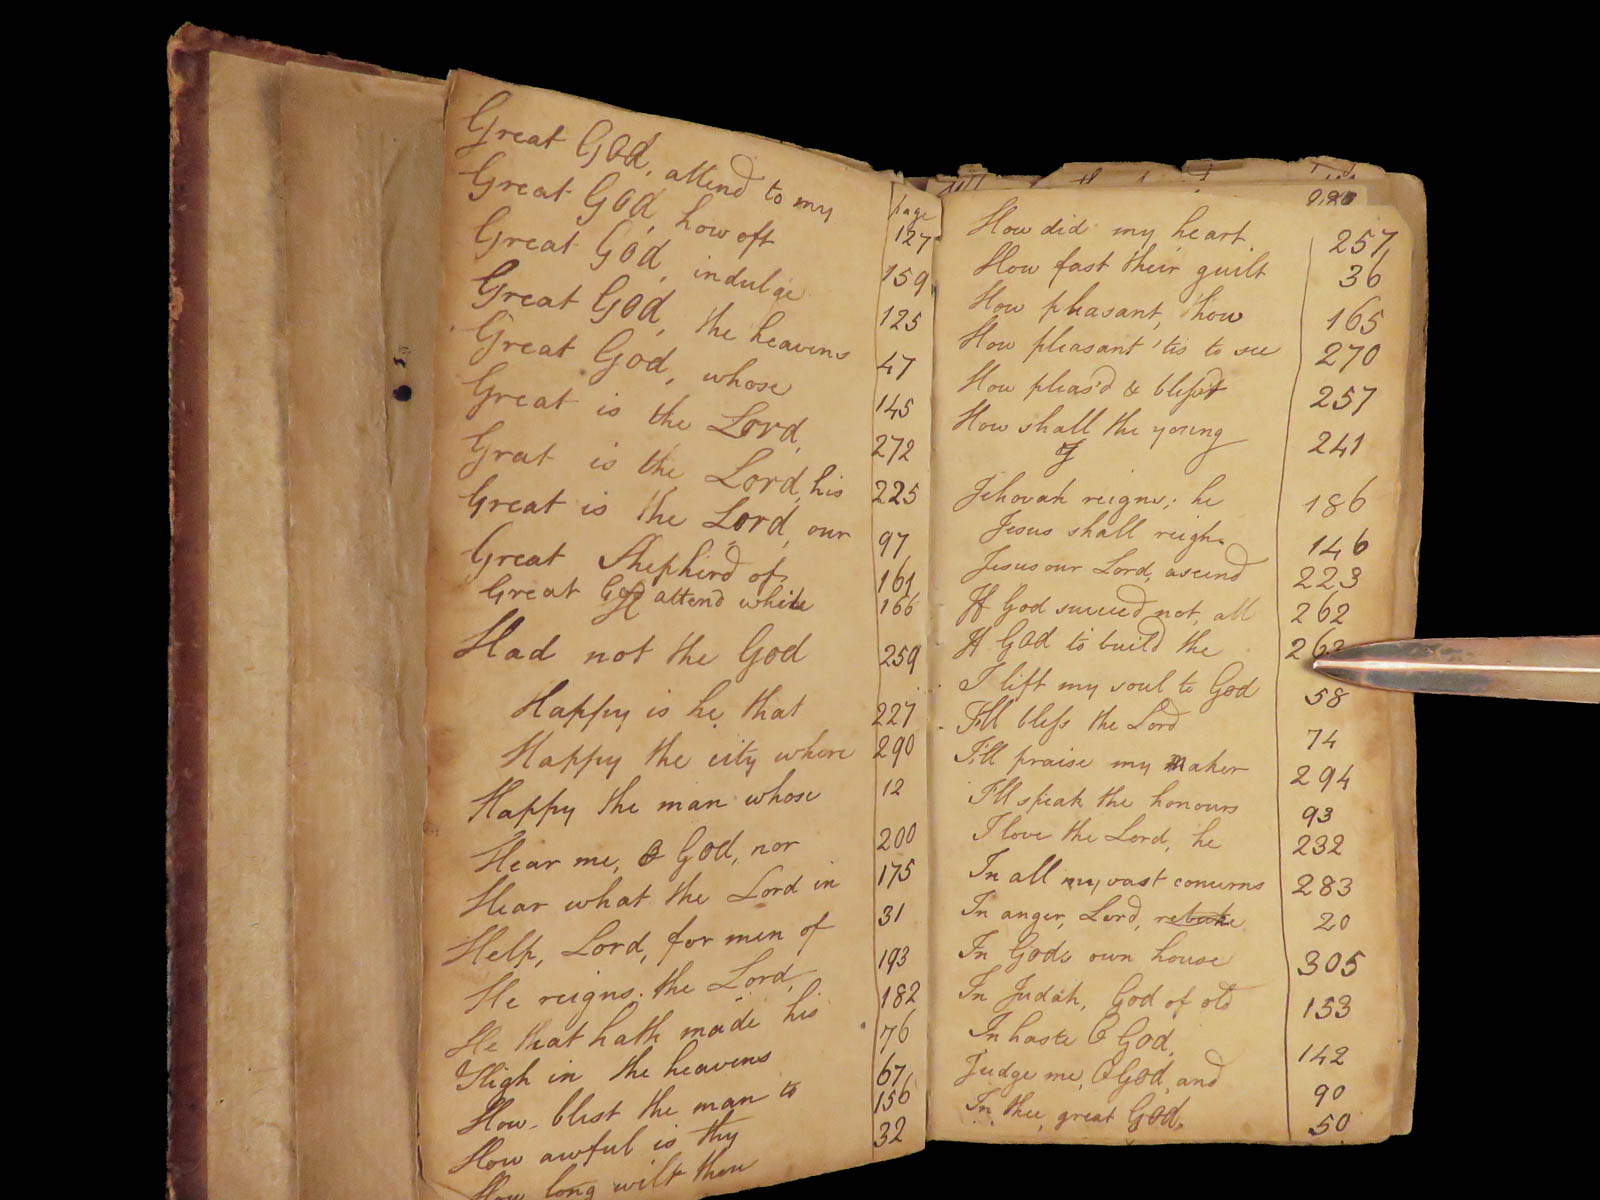 page
Great God, attend to my 127
Great God, how oft 159
Great God, indulge 125
Great God, the heavens 47
Great God, whose 145
Great is the Lord, 272
Grat is the Lord, his 225
Great is the Lord, our 97
Great Shepherd of 161
Great God attend while 166
H
Had not the God 259
Happy is he that 227
Happy the city where 290
Happy the man whose 12
Hear me, O God, nor 200
Hear what the Lord in 175
Help, Lord, for men of 31
He reigns: the Lord, 193
He that hath made his 182
High in the heavens 76
How blest the man to 67
How awful is thy 156
How long wilt thou 32
280
How did my heart 257
How fast their guilt 36
How pleasant, thou 165
How pleasant 'tis to see 270
How pleas'd & blesst 257
How shall the young 241
J
Jehovah reigns; he 186
Jesus shall reign 146
Jesus our Lord, ascend 223
If God succeed not, all 262
If God to build the 262
I lift my soul to God 58
I'll bless the Lord 74
I'll praise my maker 294
I'll speak the honours 93
I love the Lord, he 232
In all my vast concerns 283
In anger, Lord, rebuke 20
In Gods own house 305
In Judah, God of old 153
In haste O God, 142
Judge me, O God, and 90
In thee, great God, 50